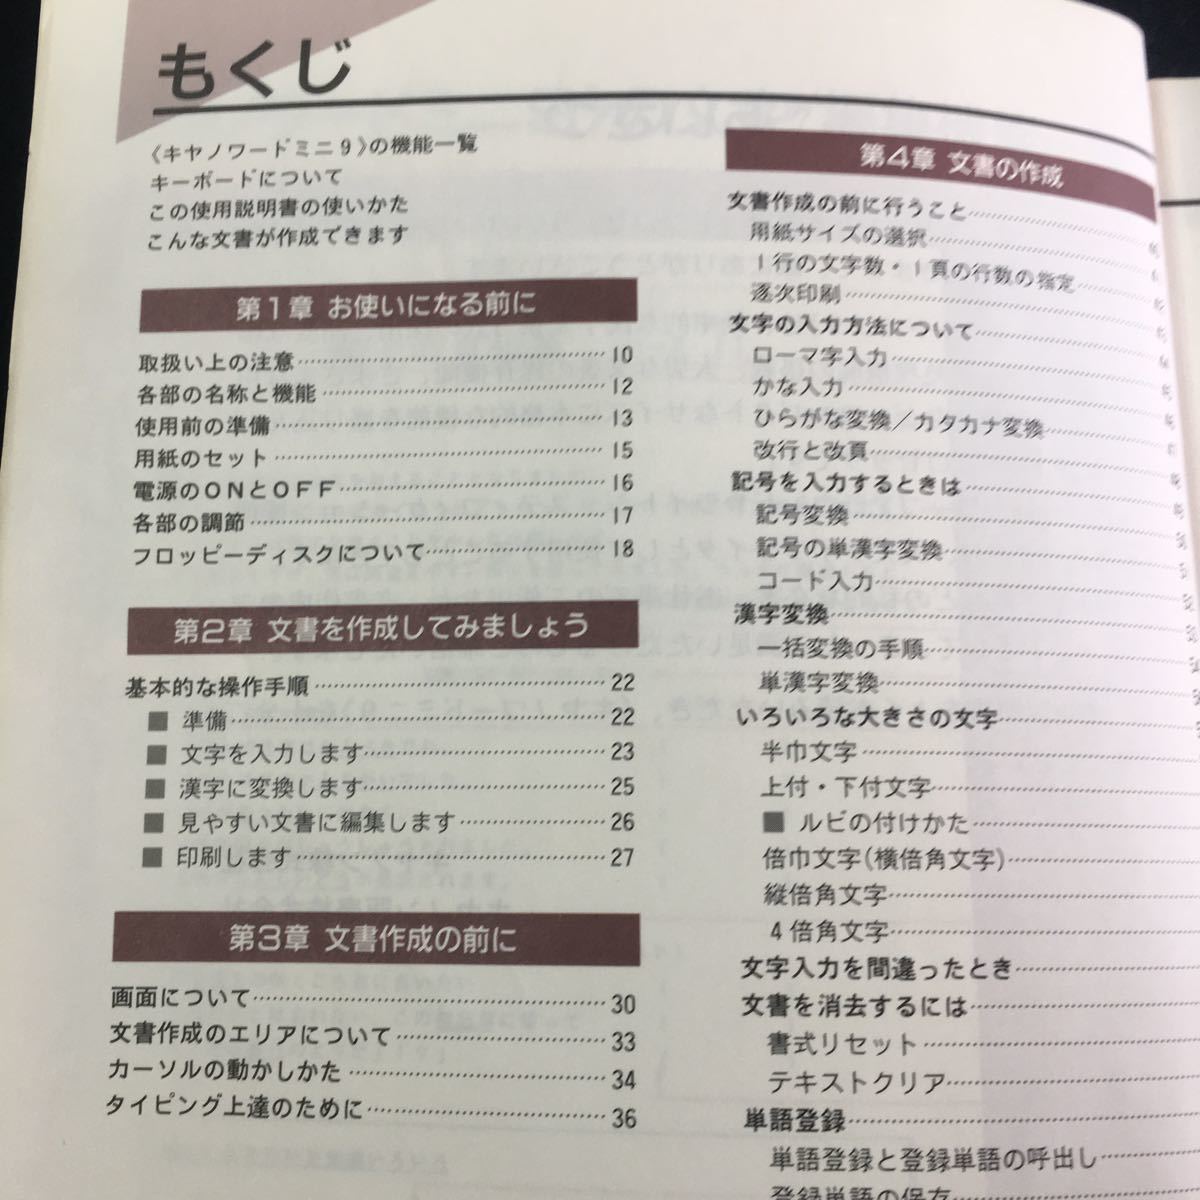 もくじ
《キヤノワードミニ9》の機能一覧
キーボードについて
この使用説明書の使いかた
こんな文書が作成できます
第1章 お使いになる前に
取扱い上の注意 10
各部の名称と機能 12
使用前の準備 13
用紙のセット 15
電源のONとOFF 16
各部の調節 17
フロッピーディスクについて 18
第2章 文書を作成してみましょう
基本的な操作手順 22
■ 準備 22
■ 文字を入力します 23
■ 漢字に変換します 25
■ 見やすい文書に編集します 26
■ 印刷します 27
第3章 文書作成の前に
画面について 30
文書作成のエリアについて 33
カーソルの動かしかた 34
タイピング上達のために 36
第4章 文書の作成
文書作成の前に行うこと
用紙サイズの選択
1行の文字数・1頁の行数の指定
逐次印刷
文字の入力方法について
ローマ字入力
かな入力
ひらがな変換/カタカナ変換
改行と改頁
記号を入力するときは
記号変換
記号の単漢字変換
コード入力
漢字変換
一括変換の手順
単漢字変換
いろいろな大きさの文字
半巾文字
上付・下付文字
■ ルビの付けかた
倍巾文字(横倍角文字)
縦倍角文字
4倍角文字
文字入力を間違ったとき
文書を消去するには
書式リセット
テキストクリア
単語登録
単語登録と登録単語の呼出し
登録単語の保存